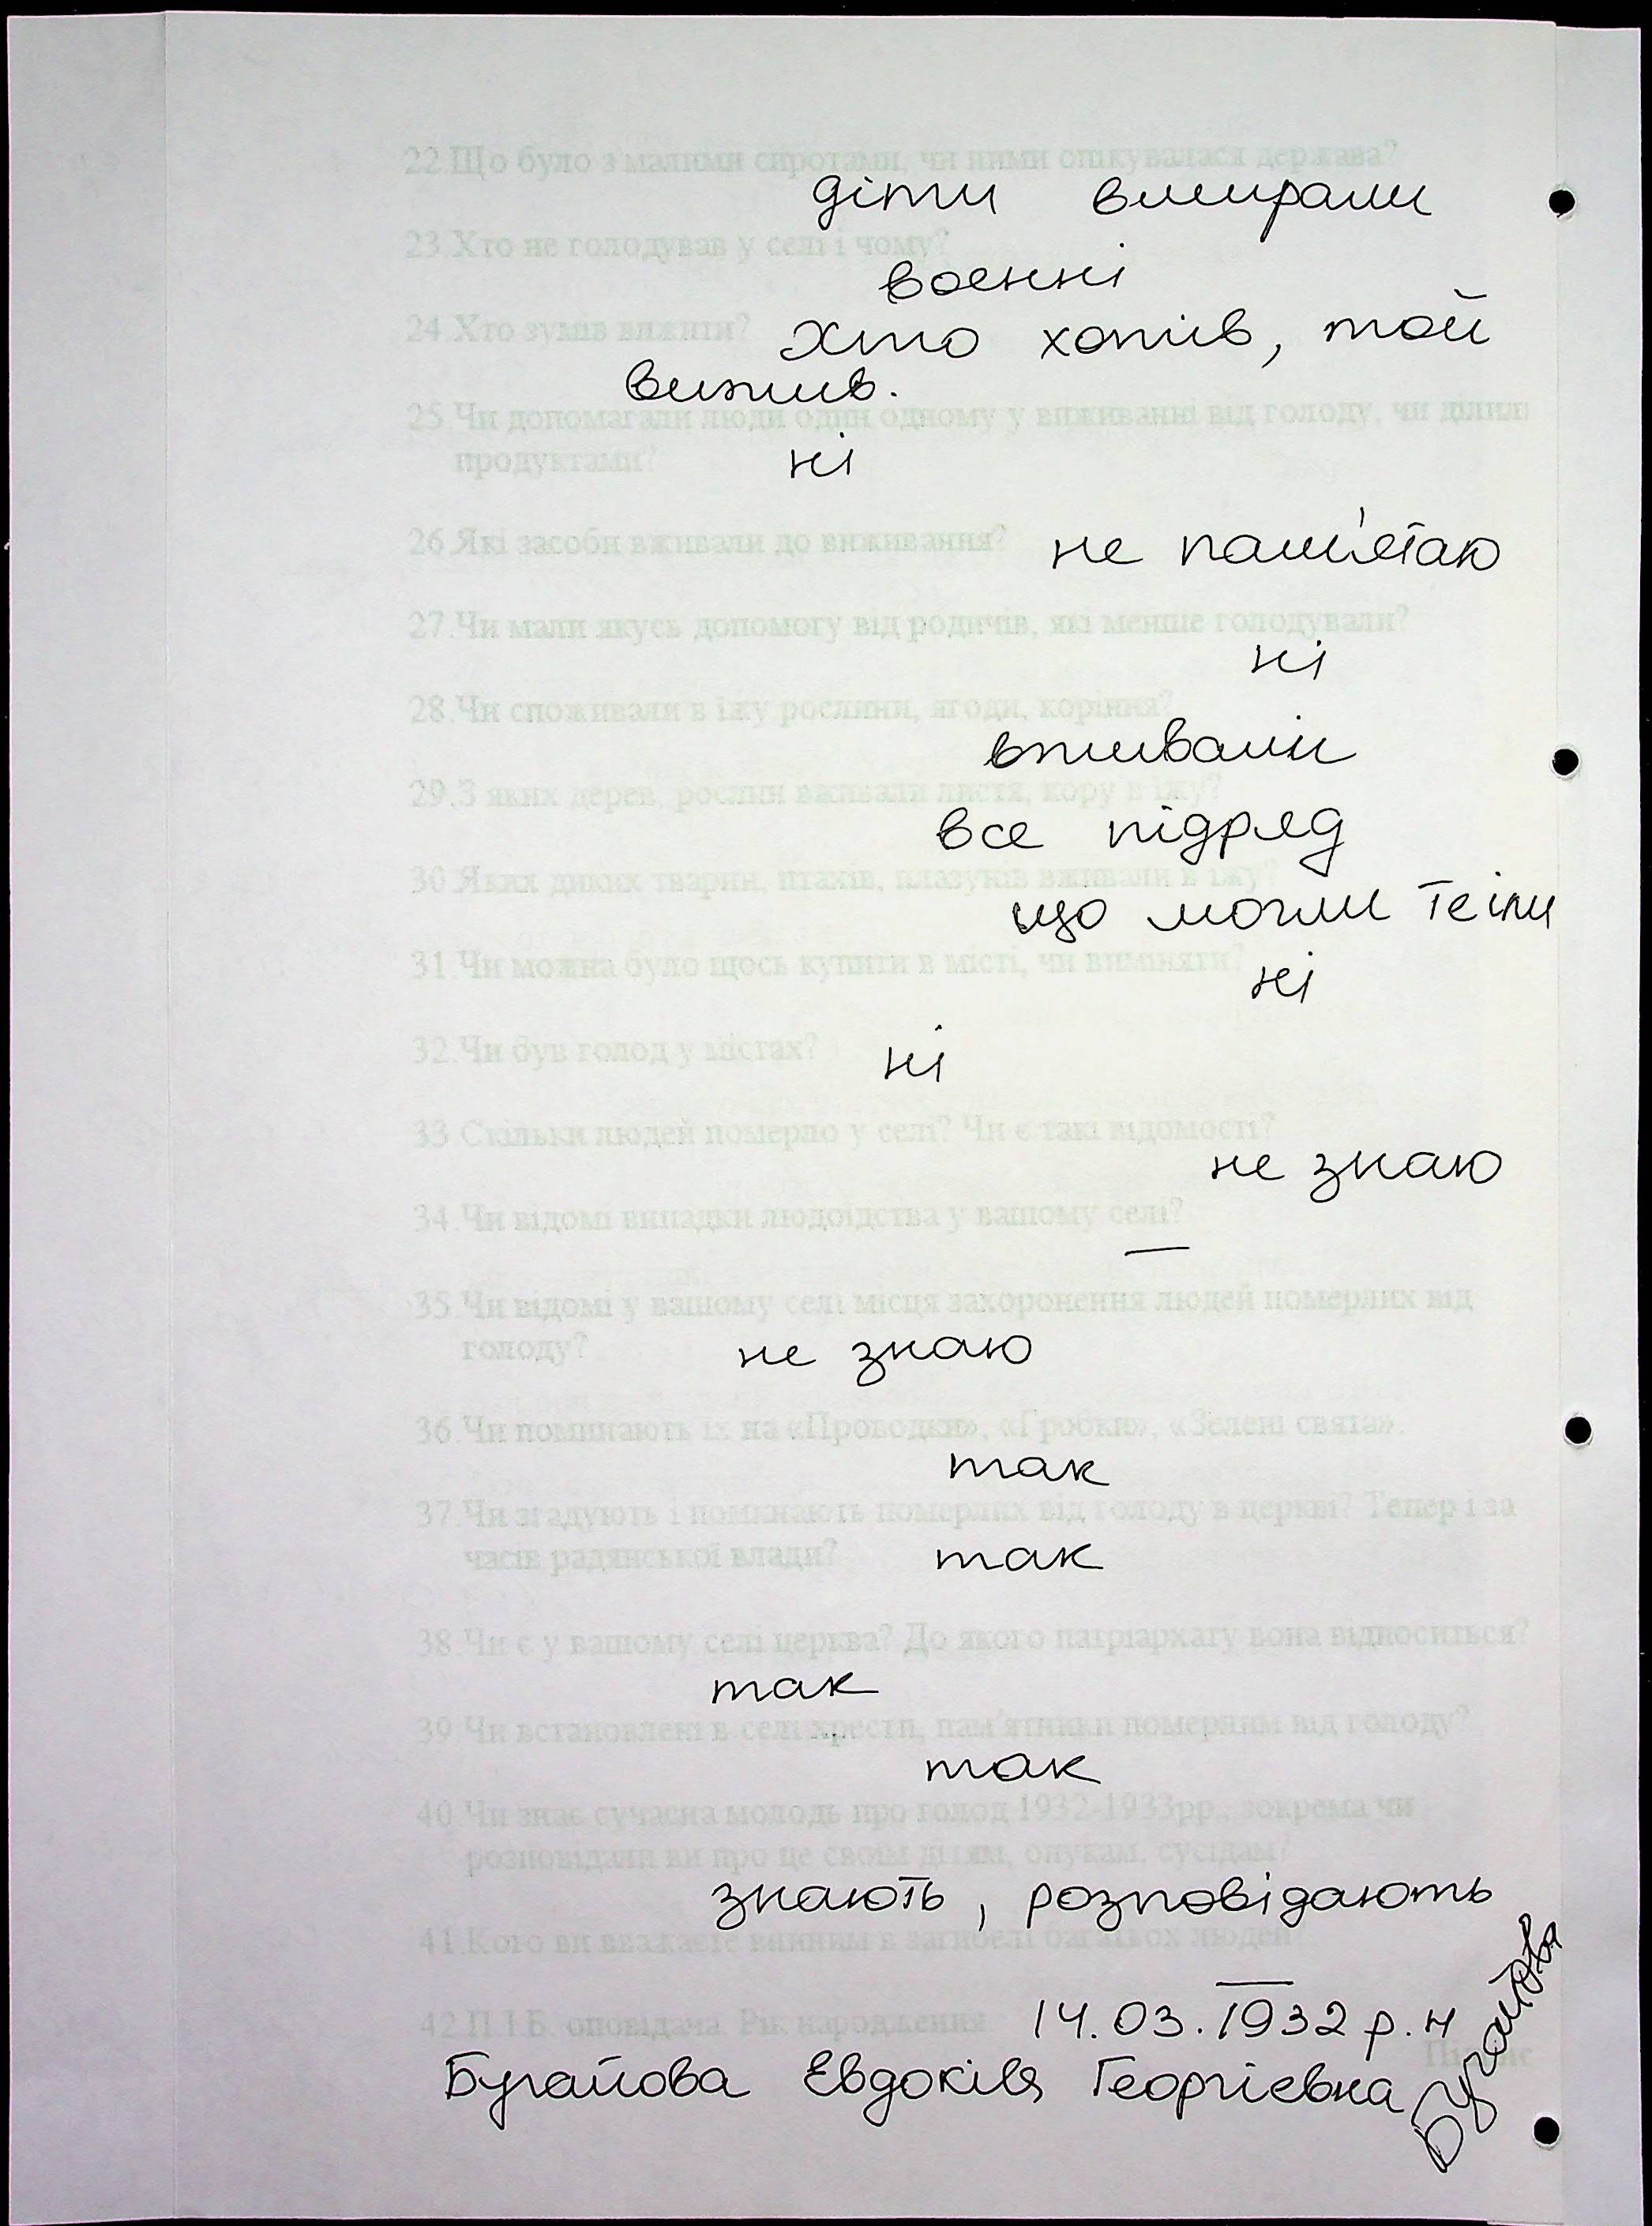 22.Що було з малими сиротами, чи ними опікувалася держава?
діти вмирали
23.Хто не голодував у селі і чому?
воєнні
24.Хто зумів вижити? Хто хотів, той
вижив.
25.Чи допомагали люди один одному у виживанні від голоду, чи ділили
продуктами? ні
26.Які засоби вживали до виживання? не пам'ятаю
27.Чи мали якусь допомогу від родичів, які менше голодували?
ні
28.Чи споживали в їжу рослини, ягоди, коріння?
вживали
29.З яких дерев, рослин вживали листя, кору в їжу?
все підряд
30.Яких диких тварин, птахів, плазунів вживали в їжу?
що могли
31.Чи можна було щось купити в місті, чи виміняти?
ні
32.Чи був голод у містах? ні
33.Скільки людей померло у селі? Чи є такі відомості?
не знаю
34.Чи відомі випадки людоїдства у вашому селі?
—
35.Чи відомі у вашому селі місця захоронення людей померлих від
голоду? не знаю
36.Чи поминають їх на «Проводки», «Гробки», «Зелені свята».
так
37.Чи згадують і поминають померлих від голоду в церкві? Тепер і за
часів радянської влади? так
38.Чи є у вашому селі церква? До якого патріархату вона відноситься?
так
39.Чи встановлені в селі хрести, пам'ятники померлим від голоду?
так
40.Чи знає сучасна молодь про голод 1932-1933рр., зокрема чи
розповідали ви про це своїм дітям, онукам, сусідам?
знають, розповідають
41.Кого ви вважаєте винним в загибелі багатьох людей?
—
42.П.І.Б. оповідача. Рік народження 14.03.1932 р.н
Підпис
Бугайова Евдокія Георгієвна Бугайова